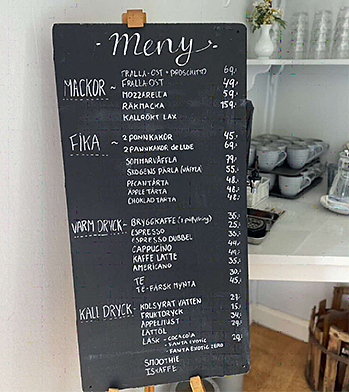 Meny
MACKOR ~
FRALLA-OST + PROSCIUTTO 69:-
FRALLA-OST 49:-
MOZZARELLA 59:-
RÄKMACKA 159:-
KALLRÖKT LAX
FIKA ~
2 PANNKAKOR 45:-
2 PANNKAKOR de LUXE 69:-
SOMMARVÅFFLA 79:-
SKOGENS PÄRLA (VÅFFLA) 55:-
PECANTÅRTA 48:-
ÄPPLETÅRTA 48:-
CHOKLADTÅRTA 48:-
VARM DRYCK-
BRYGGKAFFE (1 påfyllning) 35:-
ESPRESSO 25:-
ESPRESSO DUBBEL 35:-
CAPPUCINO 44:-
KAFFE LATTE 49:-
AMERICANO 35:-
TE 30:-
TE-FÄRSK MYNTA 45:-
KALL DRYCK-
KOLSYRAT VATTEN
FRUKTDRYCK 15:-
ÄPPELMUST 34:-
LÄTTÖL 29:-
LÄSK - COCACOLA 29:-
- FANTA EXOTIC
- FANTA EXOTIC ZERO
SMOOTHIE
ISKAFFE